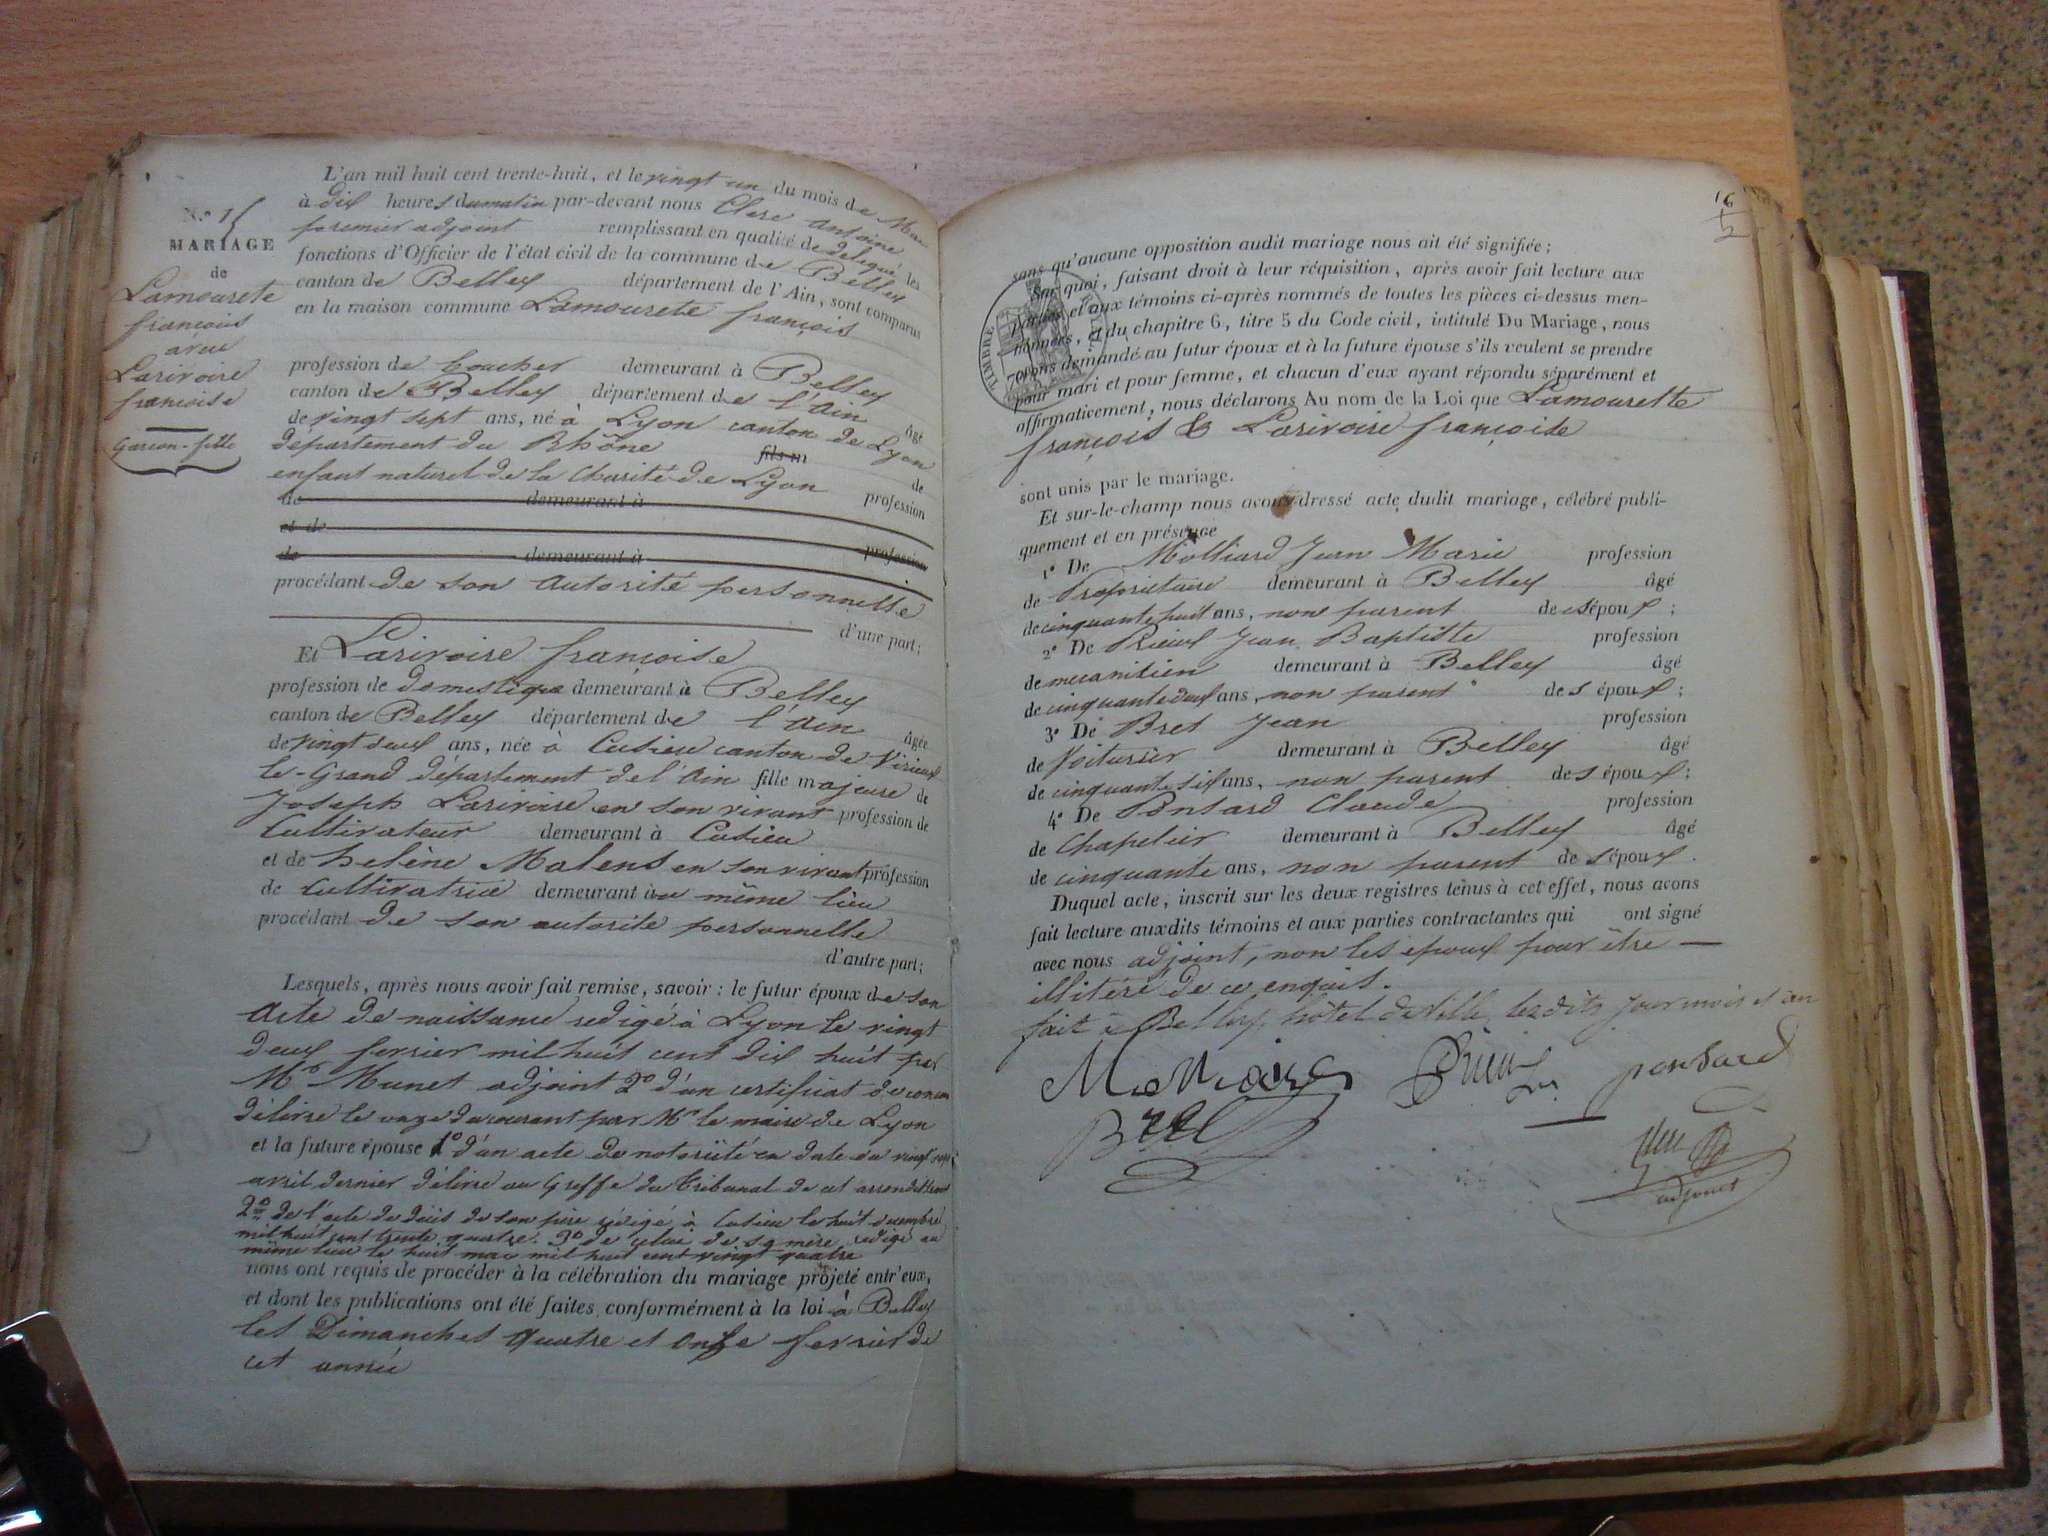 N.º 15
MARIAGE
de
Lamourete
françois
avec
Larivoire
françoise
Garçon - fille
L'an mil huit cent trente-huit, et le vingt un du mois de
à dix heures du matin par-devant nous Clerc Antoine
premier adjoint remplissant en qualité de délegué les
fonctions d'Officier de l'état civil de la commune de Belley
canton de Belley département de l'Ain, sont comparus
en la maison commune Lamourete françois
profession de cocher demeurant à Belley
canton de Belley département de l'Ain âgé
de vingt sept ans, né à Lyon canton de Lyon
département du Rhône fils m de
enfant naturel de la Charité de Lyon profession
de demeurant à
et de profession
de demeurant à
procédant de son autorité personnelle
d'une part;
Et Larivoire françoise
profession de domestique demeurant à Belley
canton de Belley département de l'Ain âgée
de vingt deux ans, née à Cusieu canton de Virieux
le-Grand département de l'Ain fille majeure de
Joseph Larivoire en son vivant profession de
Cultivateur demeurant à Cusieu
et de helène Malens en son vivant profession
de Cultivatrice demeurant au même lieu
procédant de son autorité personnelle
d'autre part;
Lesquels, après nous avoir fait remise, savoir : le futur époux de son
Acte de naissance redigé à Lyon le vingt
deux fevrier mil huit cent dix huit par
Mr Munet adjoint 2º d'un certificat de
délivré le onze du courant par Mr le maire de Lyon
et la future épouse 1º d'un acte de notoriété en date du vingt sept
avril dernier délivré au Greffe du Tribunal de cet arrondissement
2º de l'acte de décès de son père rédigé à Cusieu le huit decembre
mil huit cent trente quatre. 3º de celui de sa mère redigé au
même lieu le huit mai mil huit cent vingt quatre
nous ont requis de procéder à la célébration du mariage projeté entr'eux,
et dont les publications ont été faites, conformément à la loi à Belley
les Dimanches quatre et onze fevrier de
cet année
16
2
sans qu'aucune opposition audit mariage nous ait été signifiée;
Sur quoi, faisant droit à leur réquisition, après avoir fait lecture aux
parties et aux témoins ci-après nommés de toutes les pièces ci-dessus men-
tionnées, et du chapitre 6, titre 5 du Code civil, intitulé Du Mariage, nous
avons demandé au futur époux et à la future épouse s'ils veulent se prendre
pour mari et pour femme, et chacun d'eux ayant répondu séparément et
affirmativement, nous déclarons Au nom de la Loi que Lamourette
françois & Larivoire françoise
TIMBRE
70
sont unis par le mariage.
Et sur-le-champ nous avons dressé acte dudit mariage, célébré publi-
quement et en présence
1º De Molliard Jean Marie profession
de Propriétaire demeurant à Belley âgé
de cinquante huit ans, non parent des époux ;
2º De Prieux Jean Baptiste profession
de mecanitien demeurant à Belley âgé
de cinquante deux ans, non parent des époux ;
3º De Bret Jean profession
de Voiturier demeurant à Belley âgé
de cinquante six ans, non parent des époux ;
4º De Ponsard Claude profession
de Chapelier demeurant à Belley âgé
de cinquante ans, non parent des époux .
Duquel acte, inscrit sur les deux registres tenus à cet effet, nous avons
fait lecture auxdits témoins et aux parties contractantes qui ont signé
avec nous adjoint, non les epoux pour être
illitéré de ce enquis.
fait à Belley, hôtel de Ville, lesdits jour mois et an
ponsard
Bret
adjoint